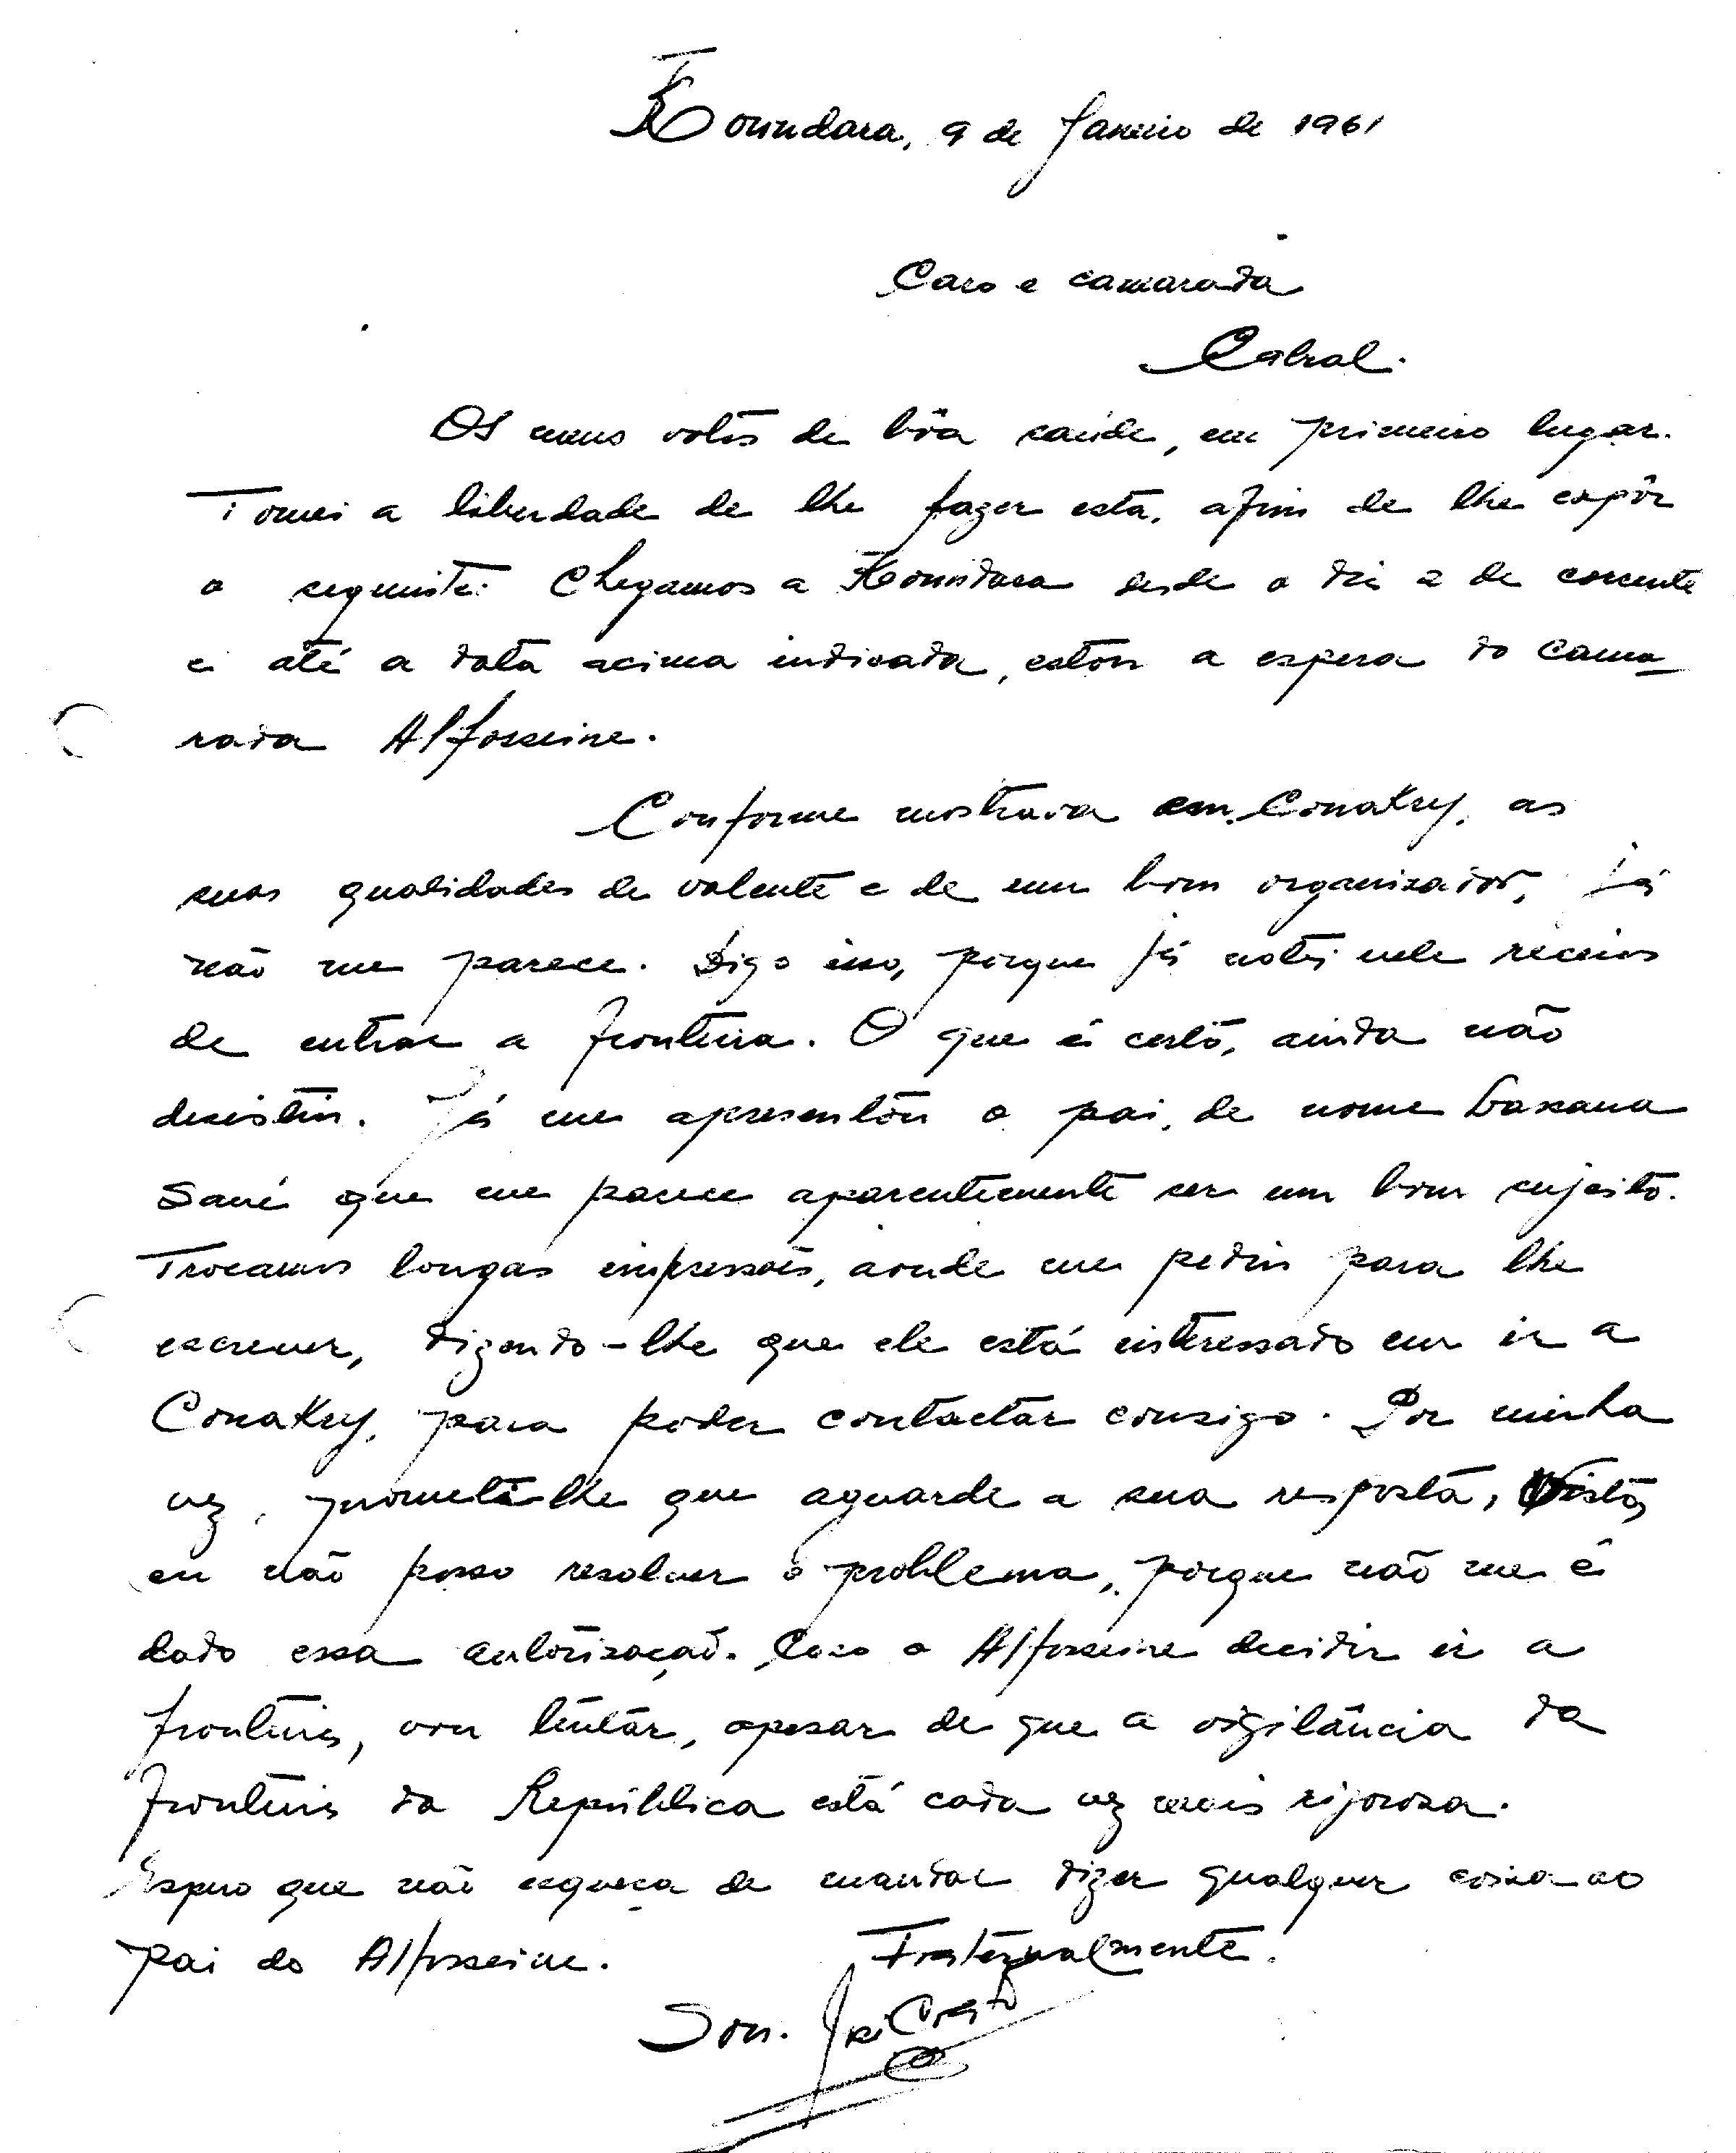 Koundara, 9 de Janeiro de 1961
Caro e camarada
Cabral.
Os meus votos de bôa saúde, em primeiro lugar.
Tomei a liberdade de lhe fazer esta, afim de lhe expôr
o seguinte: Chegamos a Koundara desde o dia 2 de corrente
e até a data acima indicada, estou a espera do cama-
rada Alfosseine.
Conforme mostrava em Conakry, as
suas qualidades de valente e de um bom organizador, já
não me parece. Digo isso, porque já notei nele receios
de entrar a fronteira. O que é certo, ainda não
desistiu. Já me apresentou o pai, de nome Lassana
Sané que me parece aparentemente ser um bom sujeito.
Trocamos longas impressões, aonde me pediu para lhe
escrever, dizendo-lhe que ele está interessado em ir a
Conakry, para poder contactar consigo. Por minha
vez, prometi-lhe que aguarde a sua resposta, visto,
eu não posso resolver o problema, porque não me é
dado essa autorização. Caso o Alfosseine decidir ir a
fronteira, vou tentar, apesar de que a vigilância da
fronteira da República está cada vez mais rigorosa.
Espero que não esqueça de mandar dizer qualquer coisa ao
pai do Alfosseine. Fraternalmente.
Sou.